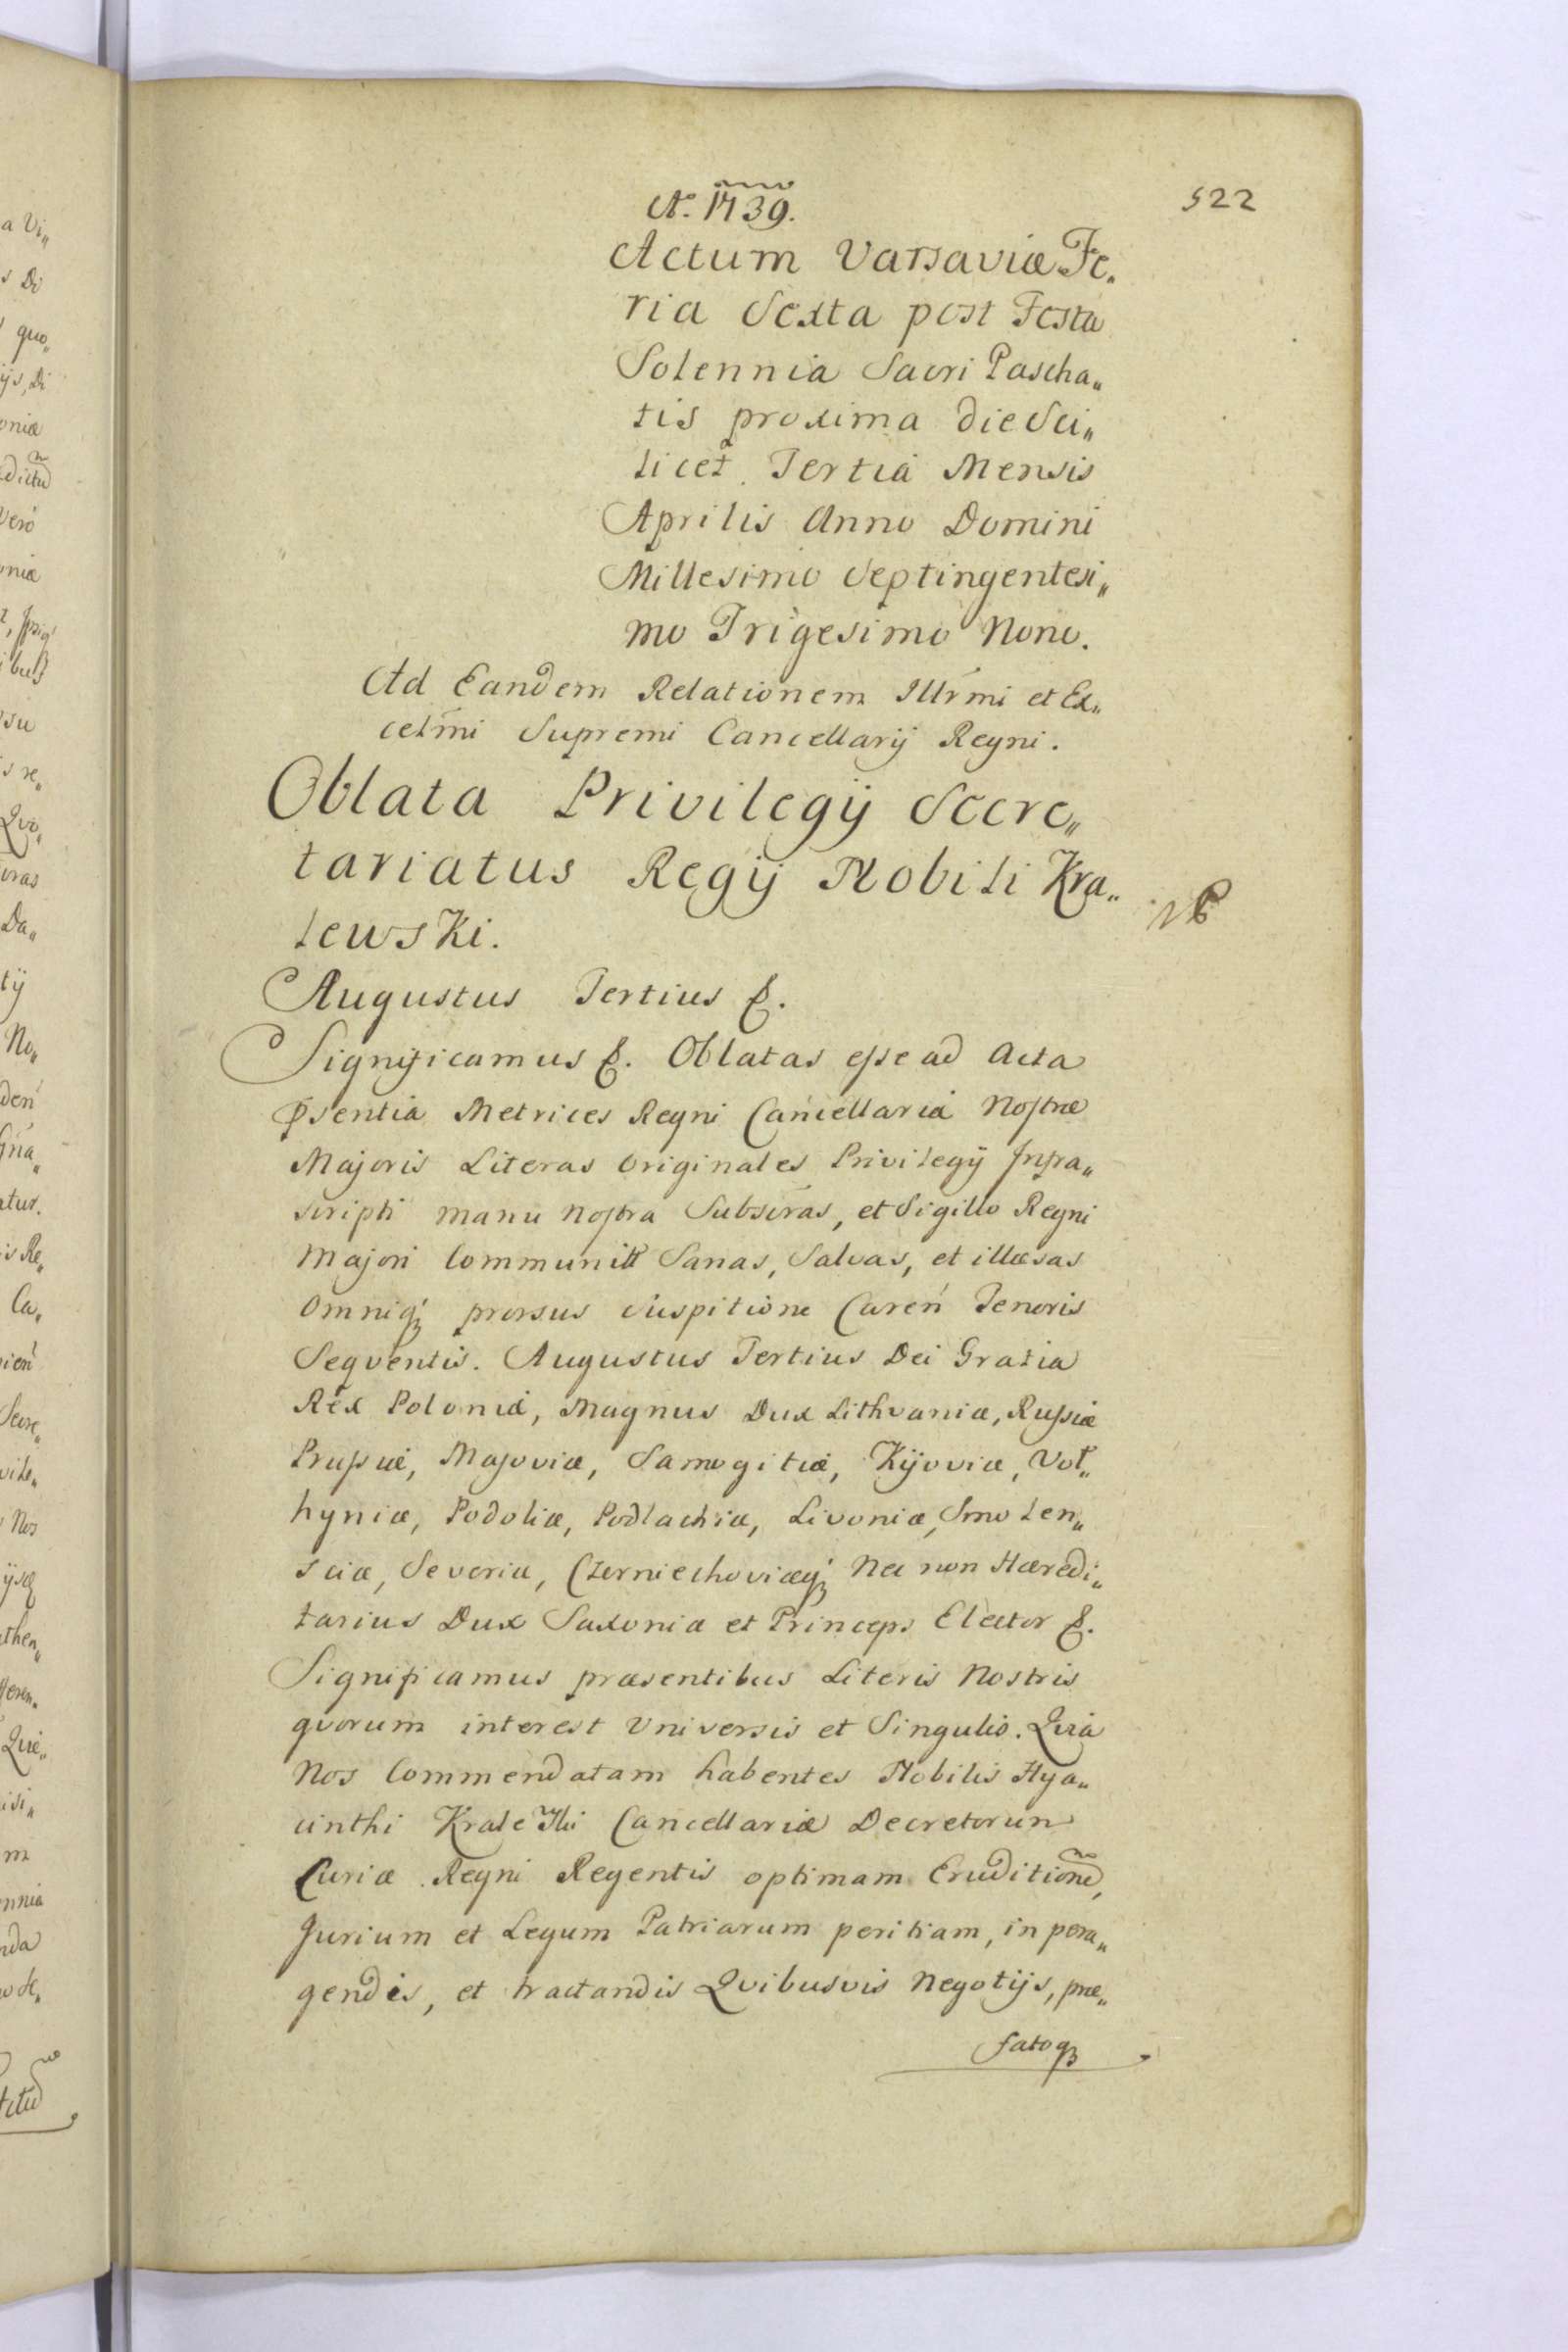 522
A. 1739.
Actum Varsaviæ Fe„
ria Sexta post Festa
Solennia Sacri Pascha„
tis proxima die Sci„
licet Tertia Mensis
Aprilis Anno Domini
Millesimo Septingentesi„
mo Trigesimo Nono.
Ad Eandem Relationem Illr̃mi et Ex„
cell̃mi Supremi Cancellarij Regni.
Oblata Privilegij Secre„
tariatus Regij Nobili Kra„
lewski.
Augustus Tertius &.
Significamus &. Oblatas esse ad Acta
Psentia Metrices Regni Cancellariæ Nostræ
Majoris Literas Originales Privilegij Infra„
scripti manu nostra Subscras, et Sigillo Regni
Majori Communitt Sanas, Salvas, et illæsas
Omniq́ꝫ prorsus Suspitione Careń Tenoris
Seqventis. Augustus Tertius Dei Gratia
Rex Poloniæ, Magnus Dux Lithvaniæ, Russiæ
Prussiæ, Masoviæ, Samogitiæ, Kijoviæ, Vol„
hyniæ, Podoliæ, Podlachiæ, Livoniæ, Smolen„
sciæ, Severiæ, Czerniechoviæq́ꝫ Nec non Hæredi„
tarius Dux Saxoniæ et Princeps Elector &.
Significamus præsentibus Literis Nostris
qvorum interest Universis et Singulis. Qvia
Nos Commendatam habentes Nobilis Hya„
cinthi Kralewski Cancellariæ Decretorum
Curiæ Regni Regentis optimam Eruditionẽ,
Jurium et Legum Patriarum peritiam, in pera„
gendis, et tractandis Qvibusvis Negotijs, præ„
fatoqꝫ